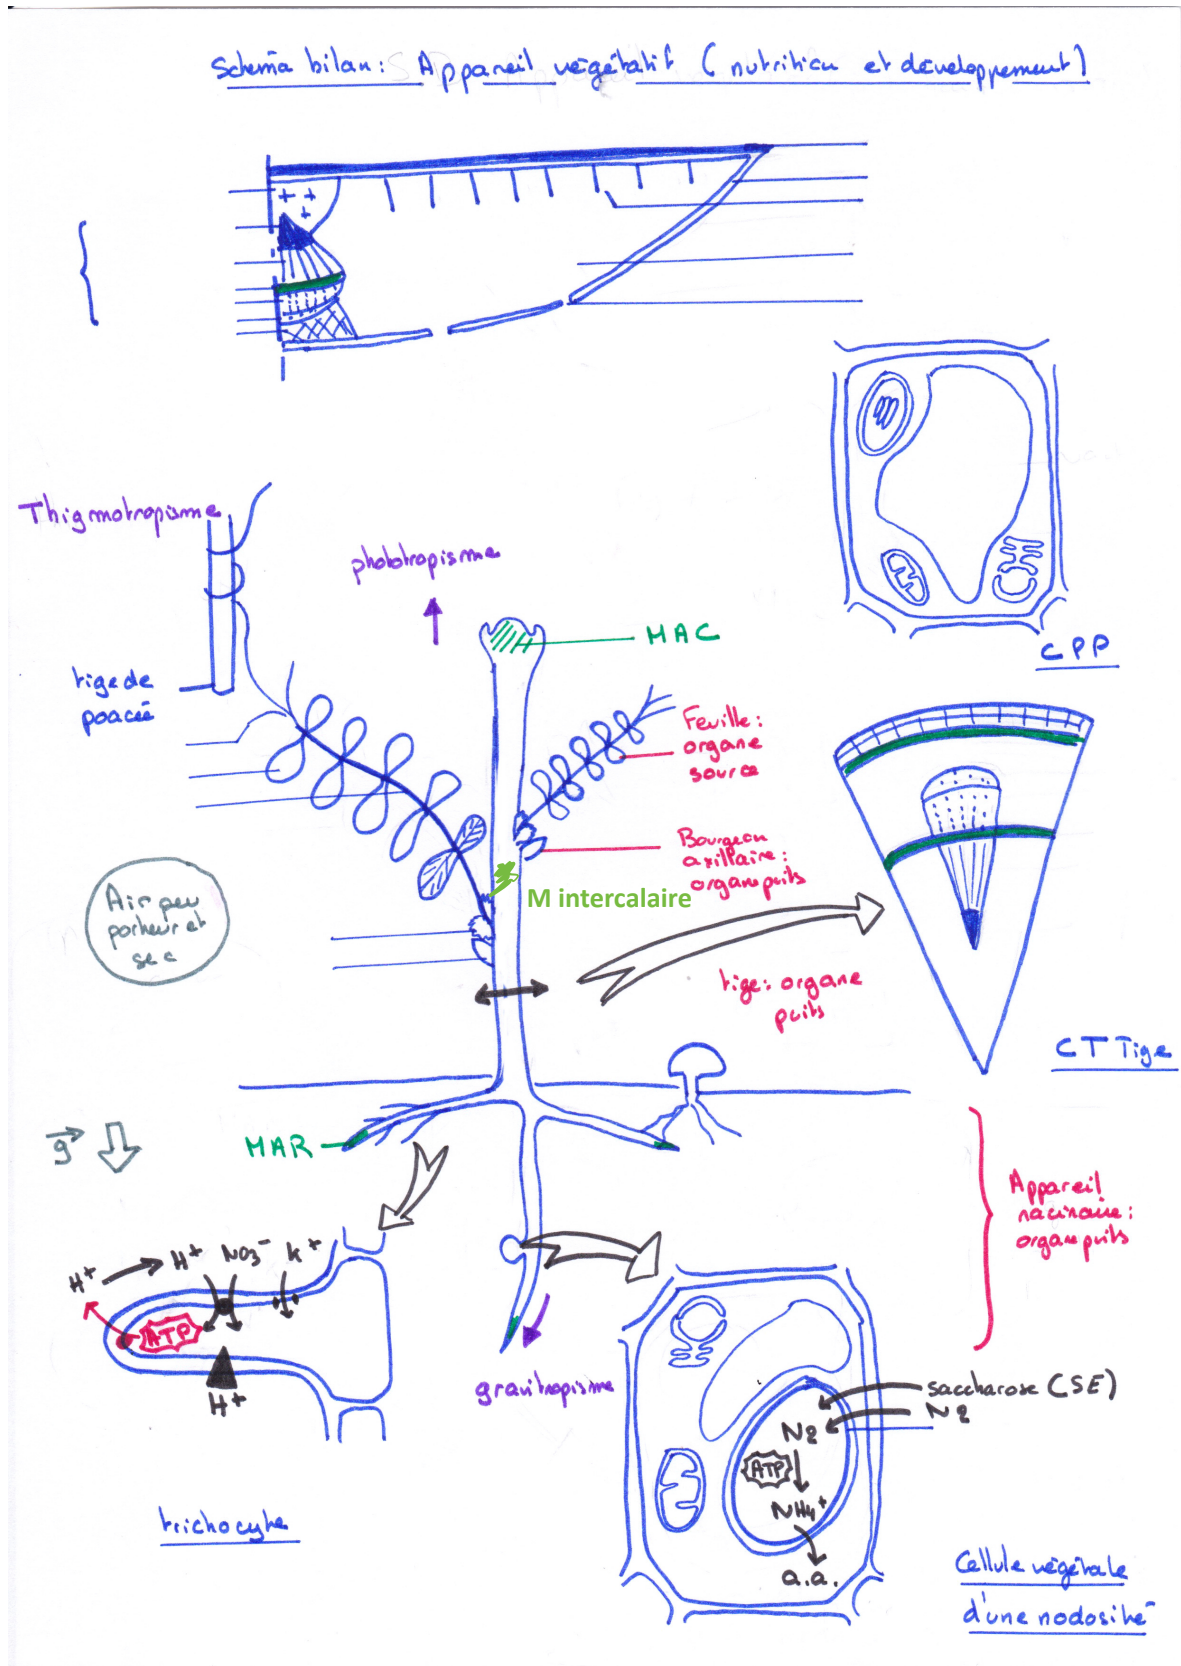 Schéma bilan: Appareil végétatif (nutrition et développement)
Thigmotropisme
phototropisme
MAC
CPP
tige de
poacée
Feuille:
organe
source
Bourgeon
axillaire:
organe puits
M intercalaire
Air peu
porteur et
sec
tige: organe
puits
CT Tige
g
MAR
Appareil
racinaire:
organe puits
H+ H+ NO3- K+
ATP
H+
gravitropisme
saccharose (SE)
N2
N2
ATP
NH4+
a.a.
trichocyte
Cellule végétale
d'une nodosité